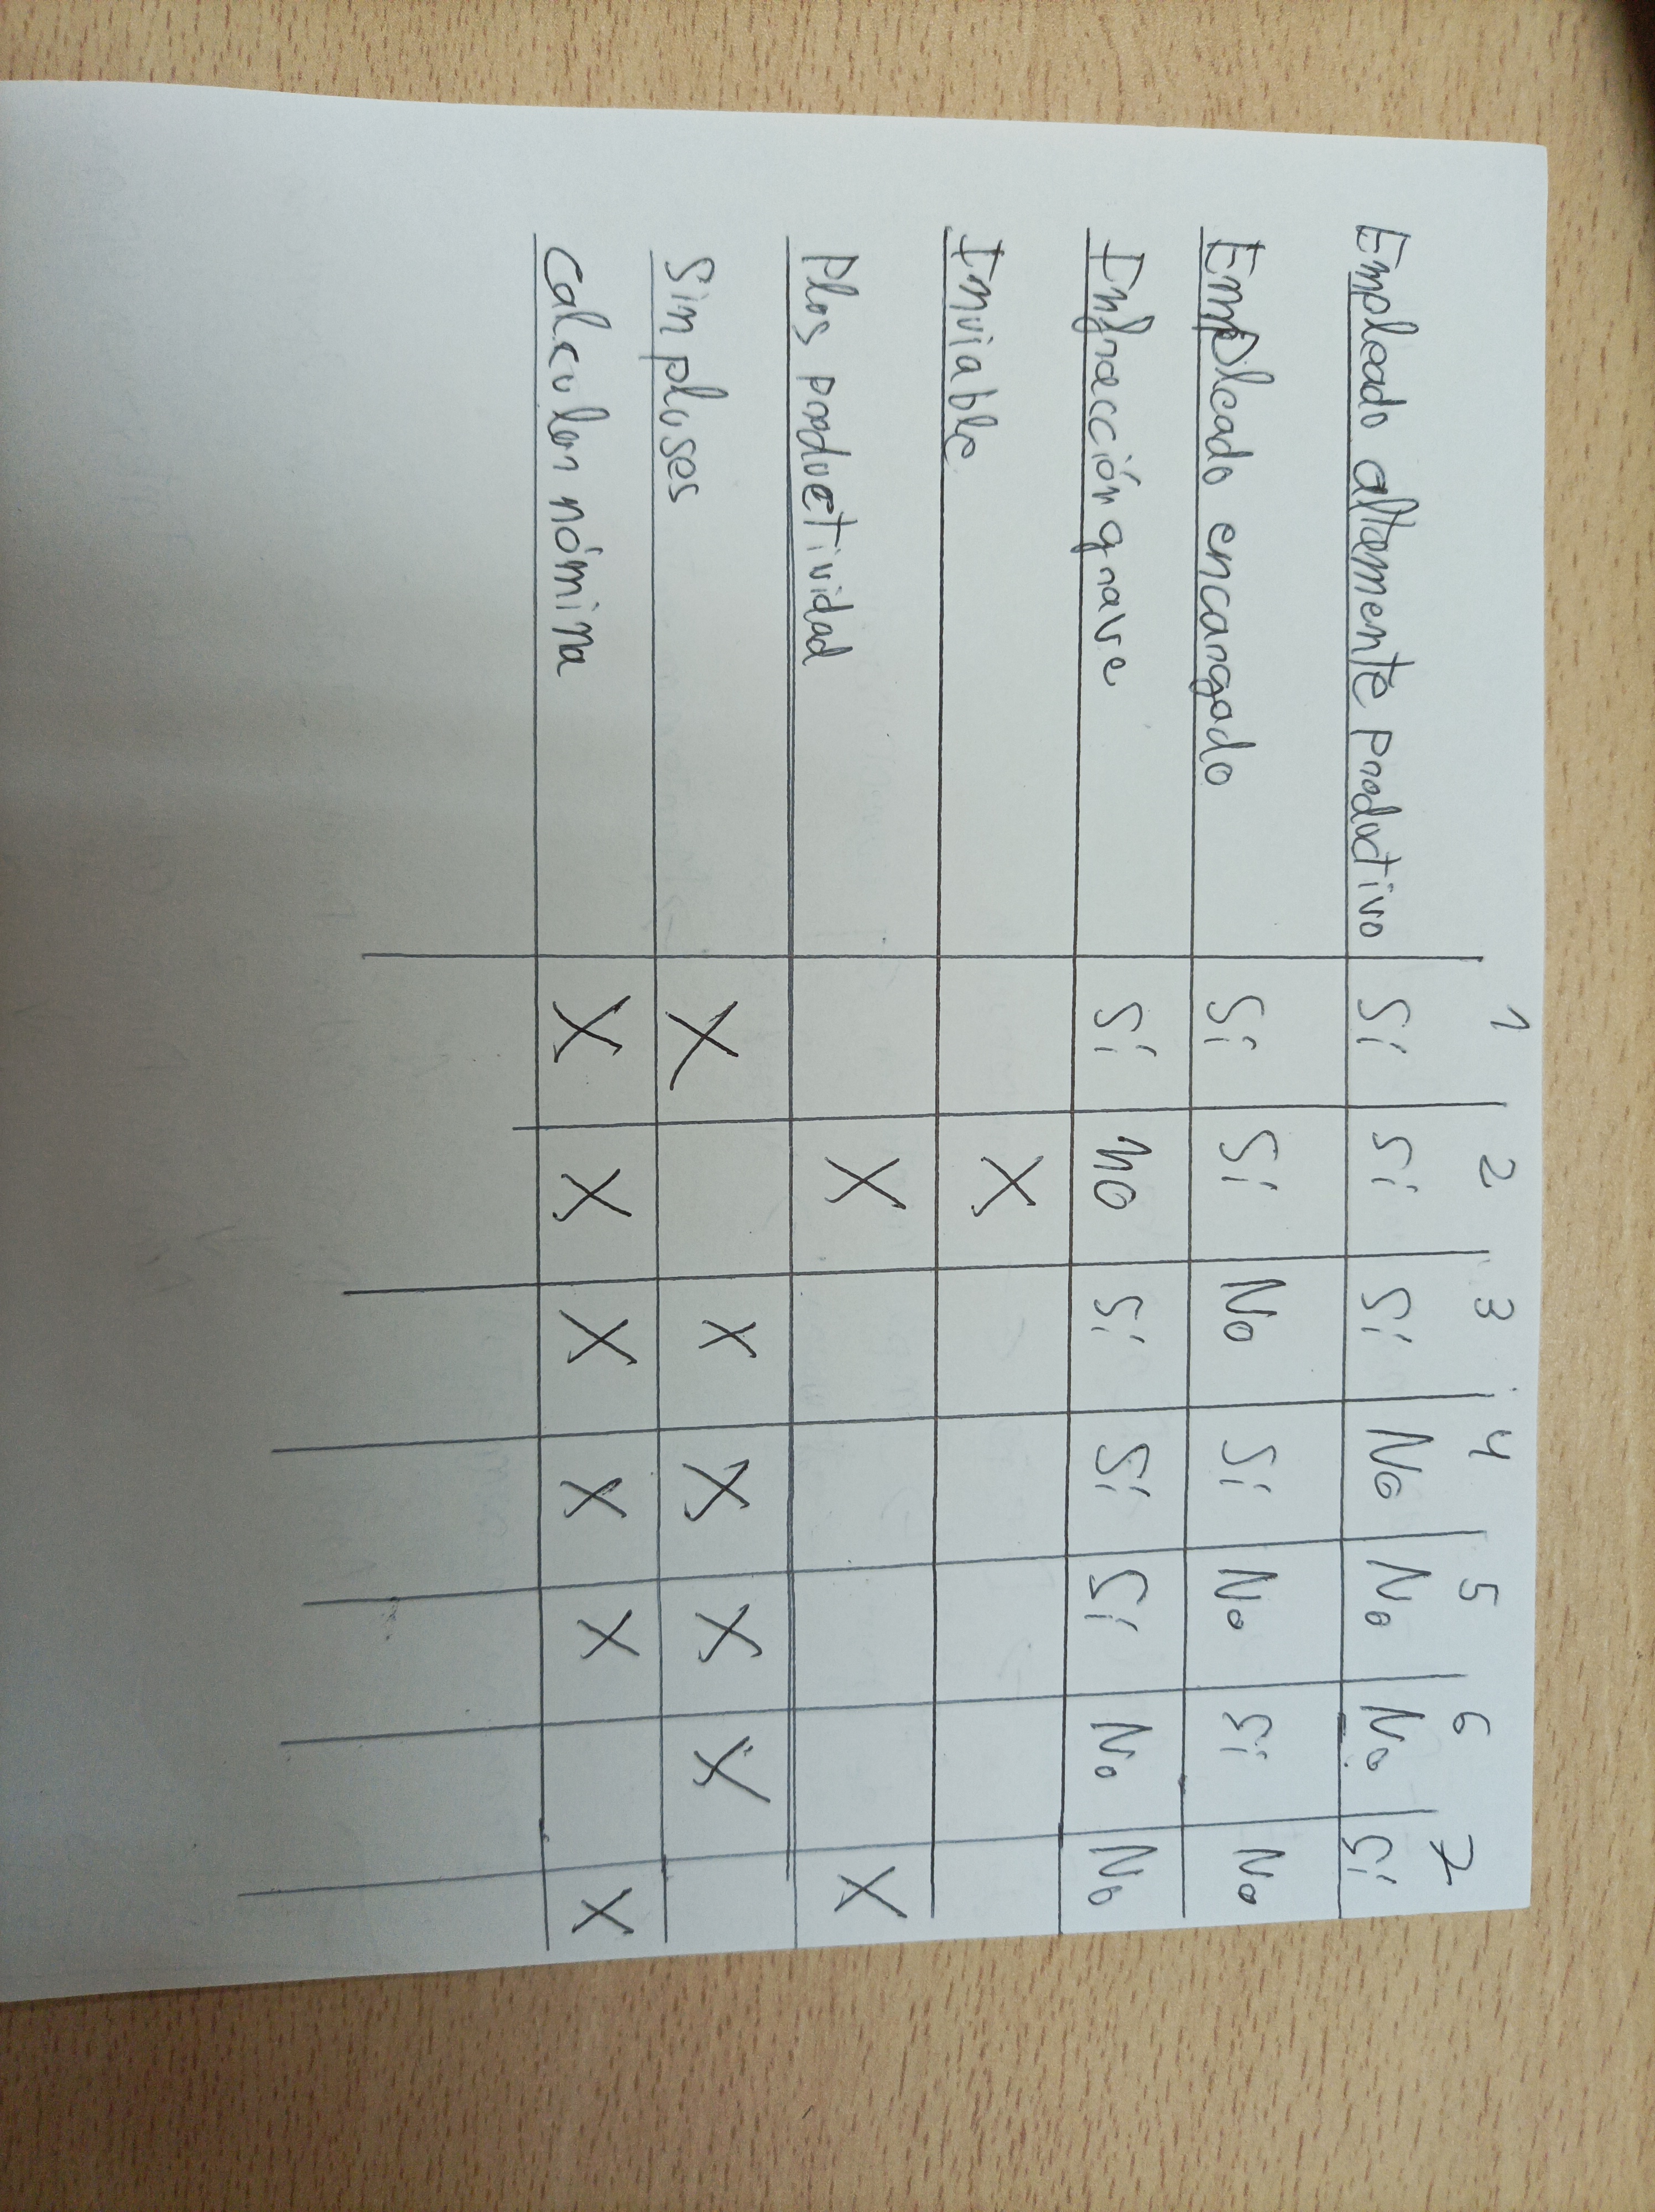 1 2 3 4 5 6 7
Empleado altamente productivo Sí Sí Sí No No No Sí
Empleado encargado Sí Sí No Sí No Sí No
Infracción grave Sí no Sí Sí Sí No No
Inviable X
Plus productividad X X
Sin pluses X X X X X
calcular nómina X X X X X X